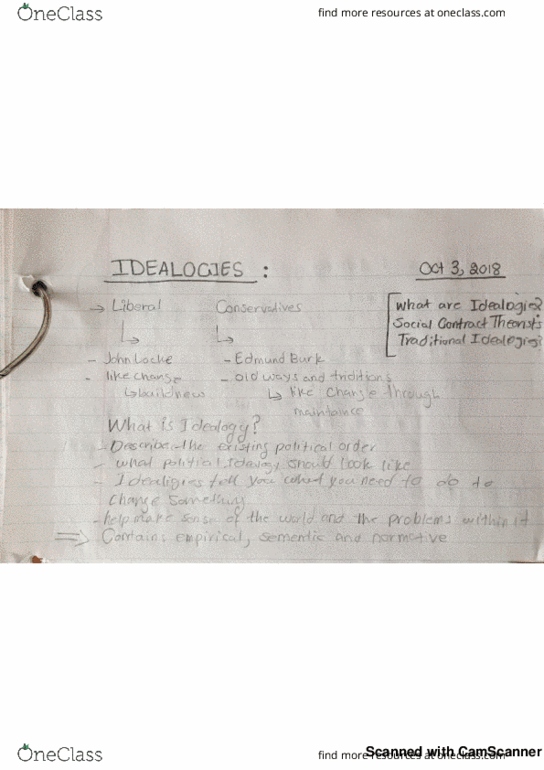 OneClass
find more resources at oneclass.com
IDEALOGIES :
Oct 3, 2018
→ Liberal
Conservatives
What are Idealogies?
Social Contract Theorists
Traditional Idealogies?
- John Locke
- Edmund Burk
- like change
- old ways and traditions
↳ build new
↳ like change through
maintaince
What is Idealogy?
- Describe the existing political order
- what political Idealogy should look like
- Idealigies tell you what you need to do to
change something
- help make sense of the world and the problems within it
⇒ Contains empirical, sementic and normative
OneClass
find more resources at oneclass.com
Scanned with CamScanner